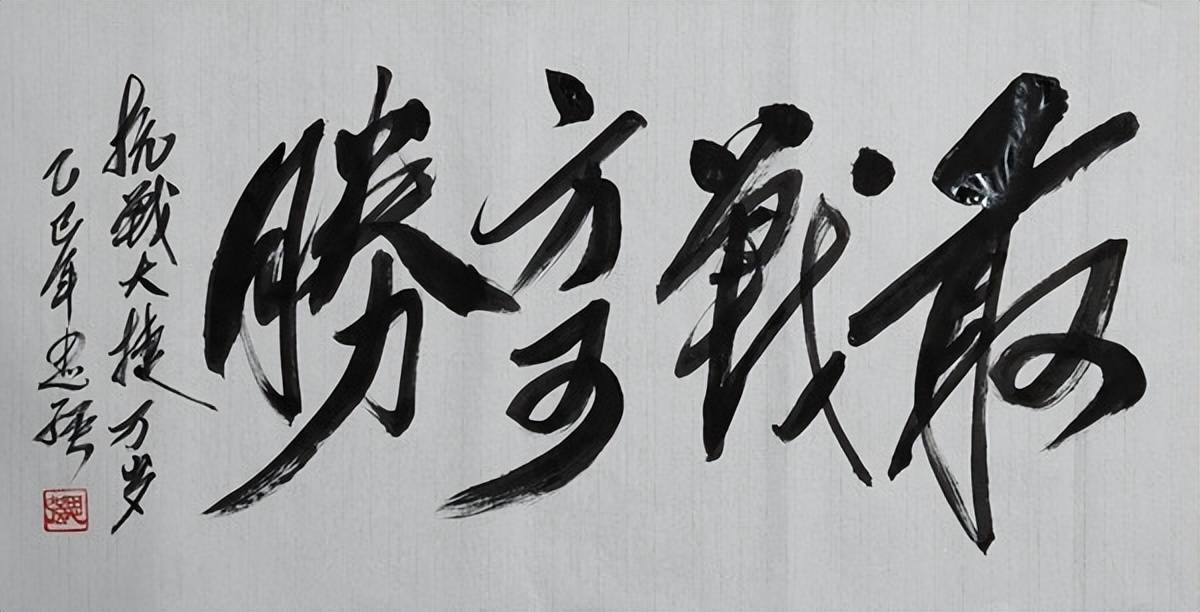 敢戰方可勝
抗戰大捷万岁
乙巳年